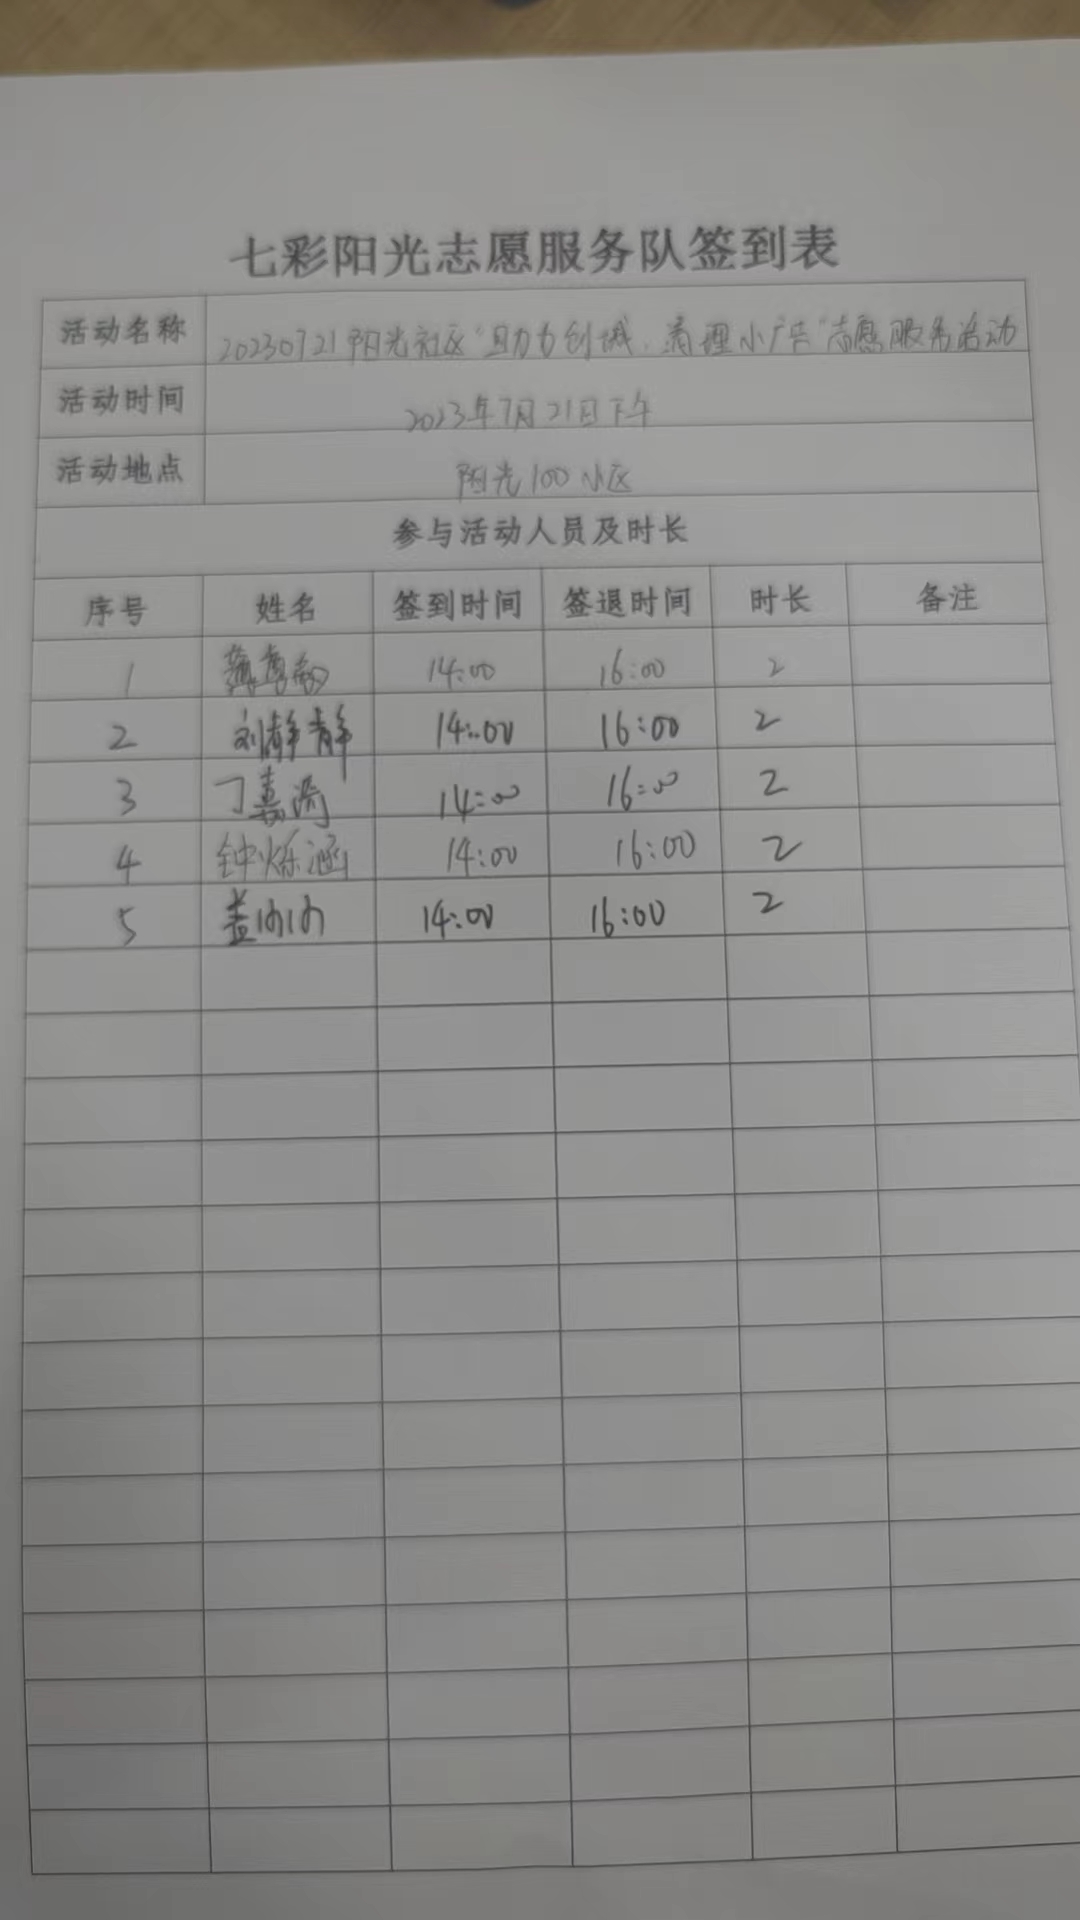 七彩阳光志愿服务队签到表
活动名称 20230721阳光社区“助力创城,清理小广告”志愿服务活动
活动时间 2023年7月21日下午
活动地点 阳光100小区
参与活动人员及时长
序号 姓名 签到时间 签退时间 时长 备注
1 14:00 16:00 2
2 刘静静 14:00 16:00 2
3 丁嘉 14:00 16:00 2
4 钟烁涵 14:00 16:00 2
5 盖 14:00 16:00 2